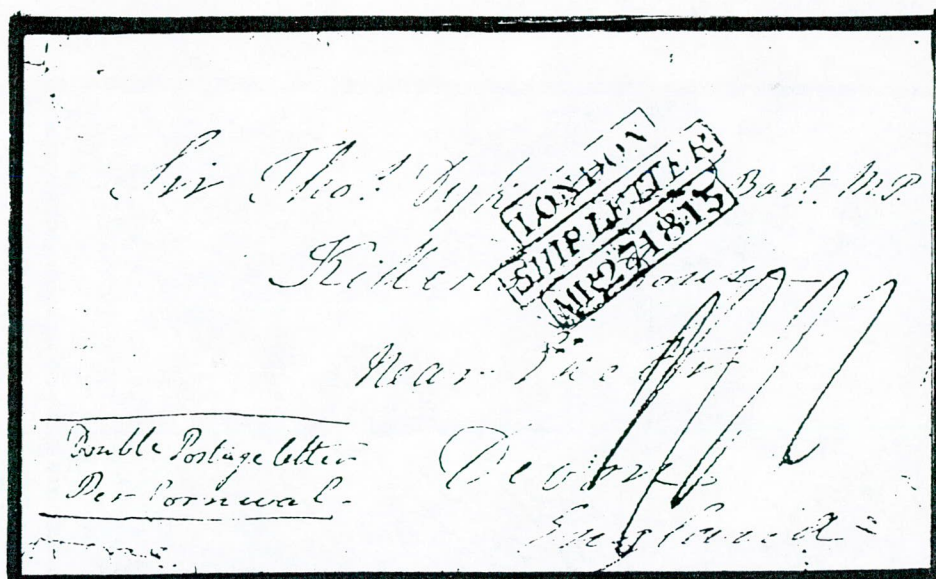 Sir Thos. Dyk Bart M.P.
LONDON
SHIP LETTER
MR 27 1815
Killer House
Near Exeter
Devon
England
Double Postage letter
Per Cornwal